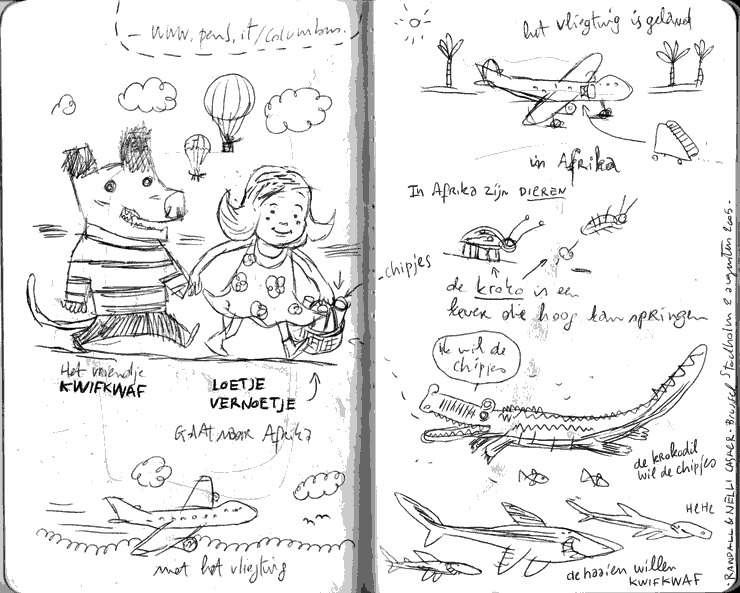 www.pens.it/columbus.
chipjes
Het vriendje
KWIFKWAF
LOETJE
VERNOETJE
GAAT naar Afrika
met het vliegting
het vliegting is geland
in Afrika
In Afrika zijn DIEREN
de kroko is een
kever die hoog kan springen
Ik wil de
chipjes
de krokodil
wil de chipjes
HEHE
de haaien willen
KWIFKWAF
RANDALL & NELLI CASAER - Brussel Stadholm 2 augustus 2005 -